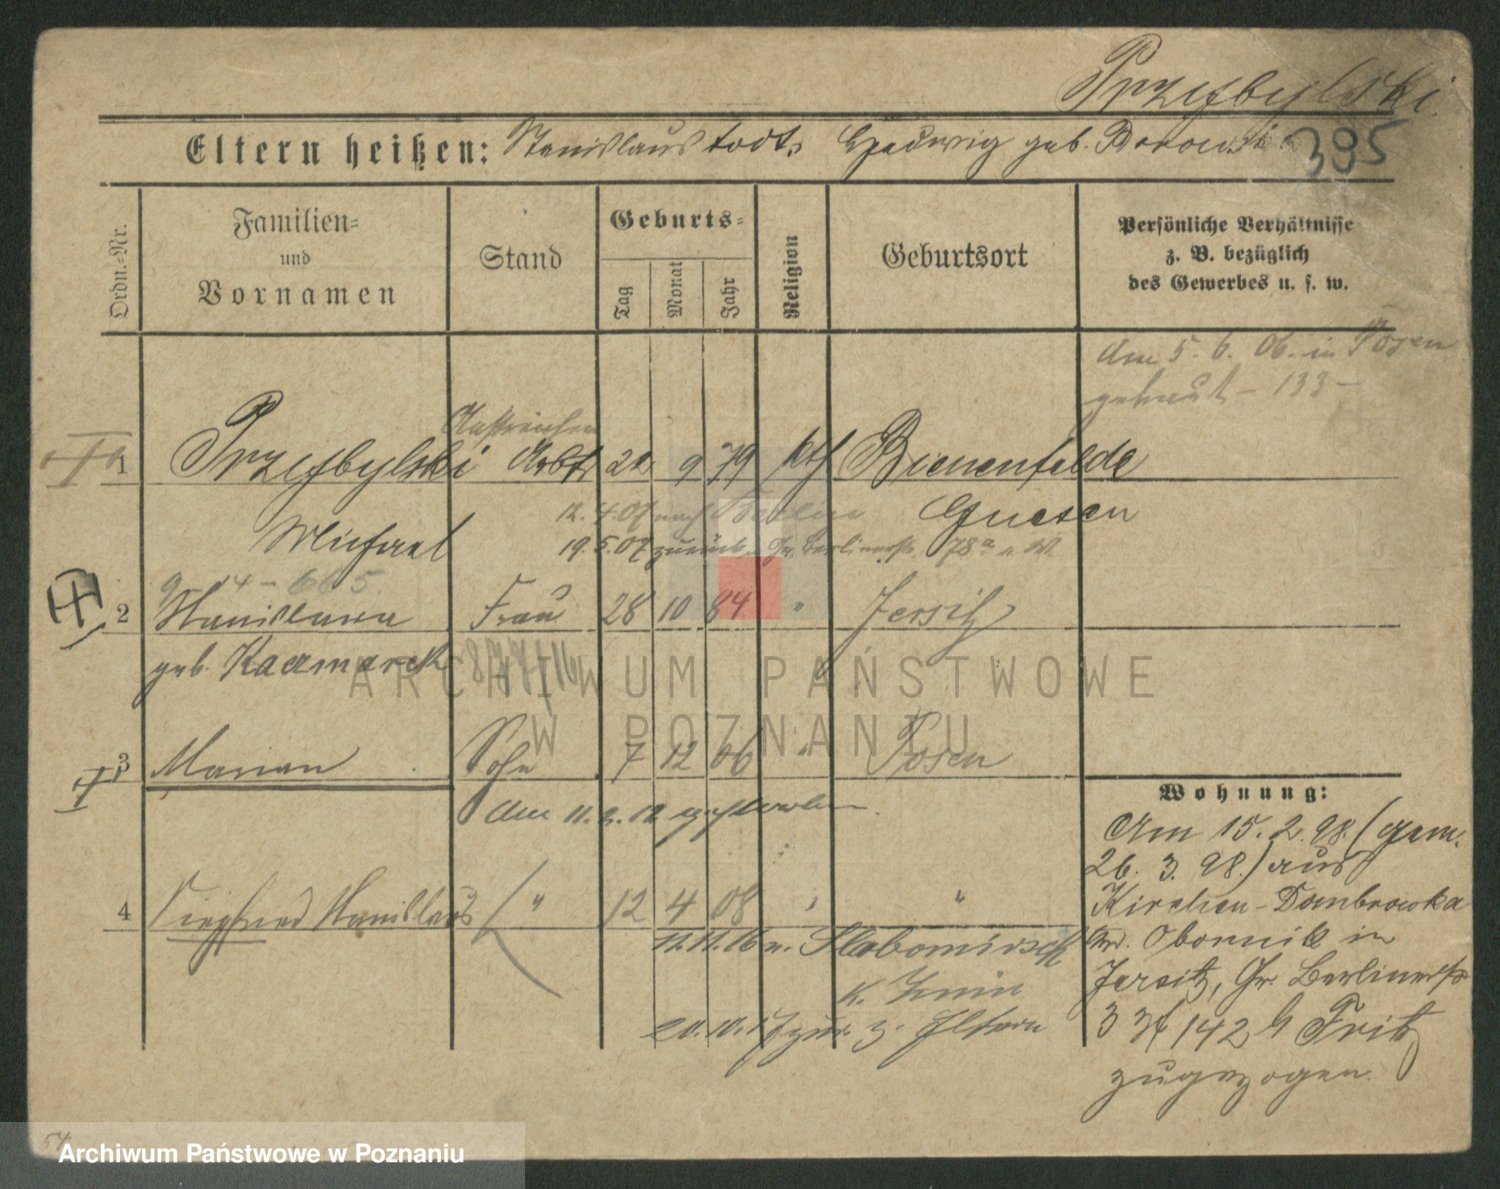 Przybylski.
Eltern heißen: Stanislaus todt, Hedwig geb. Borowska
395
Ordn.-Nr.
Familien-
und
Vornamen
Stand
Geburts-
Tag
Monat
Jahr
Religion
Geburtsort
Persönliche Verhältnisse
z. B. bezüglich
des Gewerbes u. s. w.
Am 5. 6. 06. in Posen
getraut - 133 -
1 Przybylski Arbtr 9 79 kth Bienenfelde
Michael Gnesen
12. 4. 07 nach Berlin
19. 5. 07 zurück Gr. Berlinerstr. 78a
2 Stanislawa Frau 28 10 84 " Jersitz
geb. Kaczmarek
3 Marian Sohn 7 12 06 " Posen
Am 11. 2. 12 gestorben
4 Siegfried Stanislaus " 12 4 08 " "
11. 11. 16 n. Slabomirsch
K. Znin
20. 10. 17 zur z. Eltern
Wohnung:
Am 15. 2. 98. (gem.
26. 3. 98.) aus
Kirchen-Dombrowka
Kr. Obornik in
Jersitz, Gr. Berlinerstr
142 b Fritz
zugezogen.
ARCHIWUM PAŃSTWOWE
W POZNANIU
Archiwum Państwowe w Poznaniu